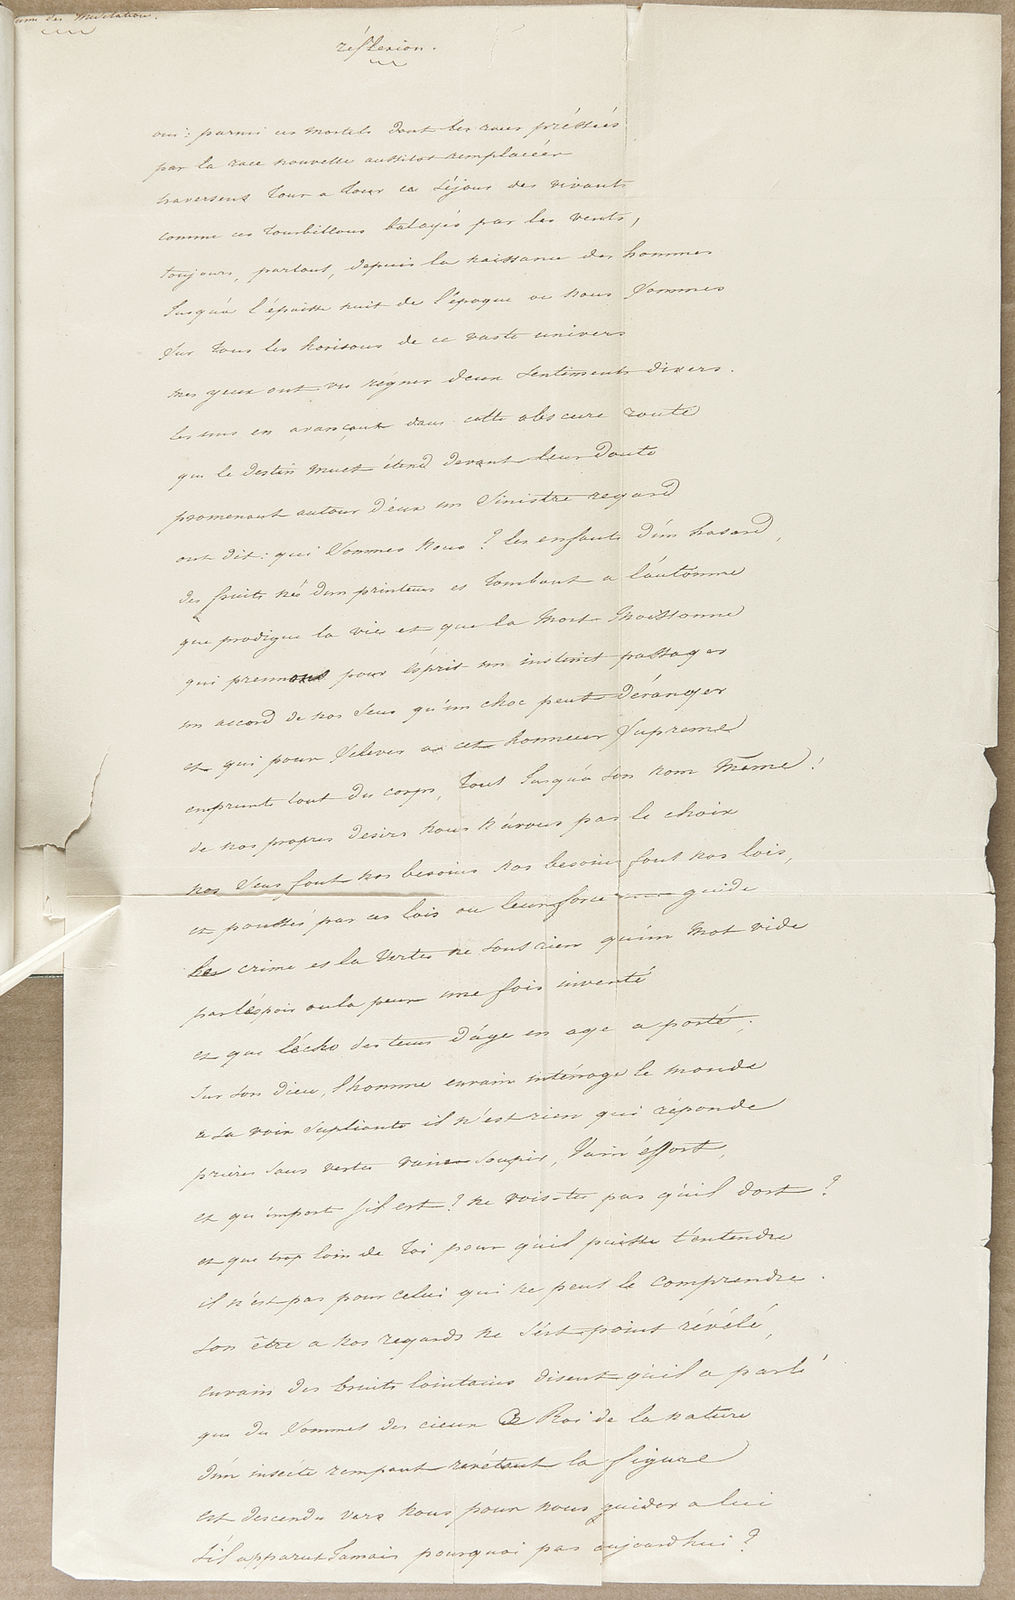 des Méditation.
réflexion.
oui: parmi ces mortels dont les races préssées
par la race nouvelle aussitot remplacéer
traversent tour a tour ce séjour des vivants
comme ces tourbillons balayés par les vents,
toujours, partout, depuis la naissance des hommes
Jusqu'a l'épaisse nuit de l'époque ou nous Sommes
Sur tous les horisons de ce vaste univers
mes yeux ont vu régner deux sentiments divers.
les uns en avançant dans cette obscure route
que le destin muet étend devant leur doute
promenant autour d'eux un Sinistre regard
ont dit: qui Sommes nous? les enfants d'un hasard,
des fruits nés d'un printems et tombant a l'autômne
que prodigue la vie et que la mort moissonne
qui prennent pour ésprit un instinct passager
un accord de nos Sens qu'un choc peut déranger
et qui pour S'elever a cet honneur Suprême
emprunte tout du corps, tout Jusqu'a son nom même!
de nos propres desirs nous n'avons pas le choix
nos Sens font nos besoins nos besoins font nos lois,
et poussés par ces lois ou leur force guide
le crime et la vertu ne sont rien qu'un mot vide
par l'éspoir ou la peur une fois inventé
et que l'écho des tems d'age en age a porté.
Sur son dieu, l'homme envain intérroge le monde
a sa voix supliante il n'est rien qui réponde
prière sans vertu vain soupir, Vain éffort,
et qu'importe S'il est? ne vois-tu pas qu'il dort?
et que trop loin de toi pour qu'il puisse t'entendre
il n'est pas pour celui qui ne peut le comprendre.
son être a nos regards ne s'est point révélé,
envain des bruits lointains disent qu'il a parlé
que du Sommet des cieux Ce Roi de la nature
d'un insecte rempant revétant la figure
est descendu vers nous pour nous guider a lui
S'il apparut Jamais pourquoi pas aujourd'hui?